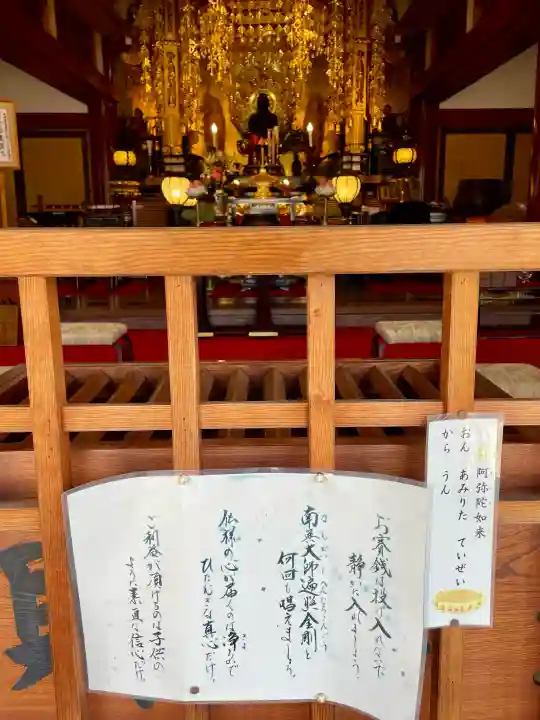 阿弥陀如来
おん あみりた ていぜい
から うん
お賽銭は投げ入れないで
静かに入れましょう。
南無大師遍照金剛と
何回も唱えましょう。
仏様の心が届くのは浄らかで
ひたむきな真心だけ。
ご利益が頂けるのは子供の
ような素直な信心だけ。